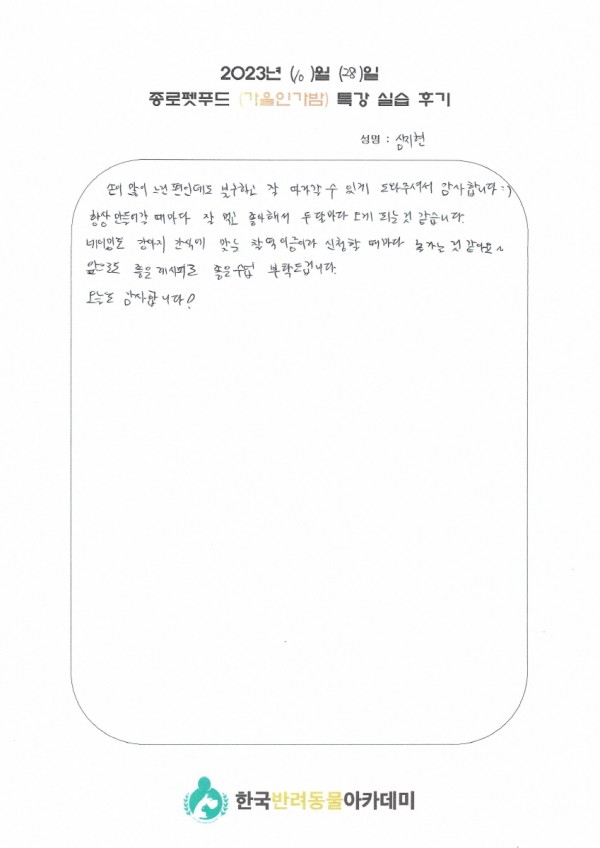 2023년 (10)월 (28)일
종로펫푸드 (가을인가밤) 특강 실습 후기
성명 : 심지현
손이 많이 느린 편인데도 불구하고 잘 따라갈 수 있게 도와주셔서 감사합니다 :)
항상 만들어갈 때마다 잘 먹고 좋아해서 두 달마다 오게 되는 것 같습니다.
네이밍도 강아지 간식에 맞는 찰떡 이름이라 신청할 때마다 눈가는 것 같아요~
앞으로도 좋은 레시피로 좋은 수업 부탁드립니다.
오늘도 감사합니다!
한국반려동물아카데미